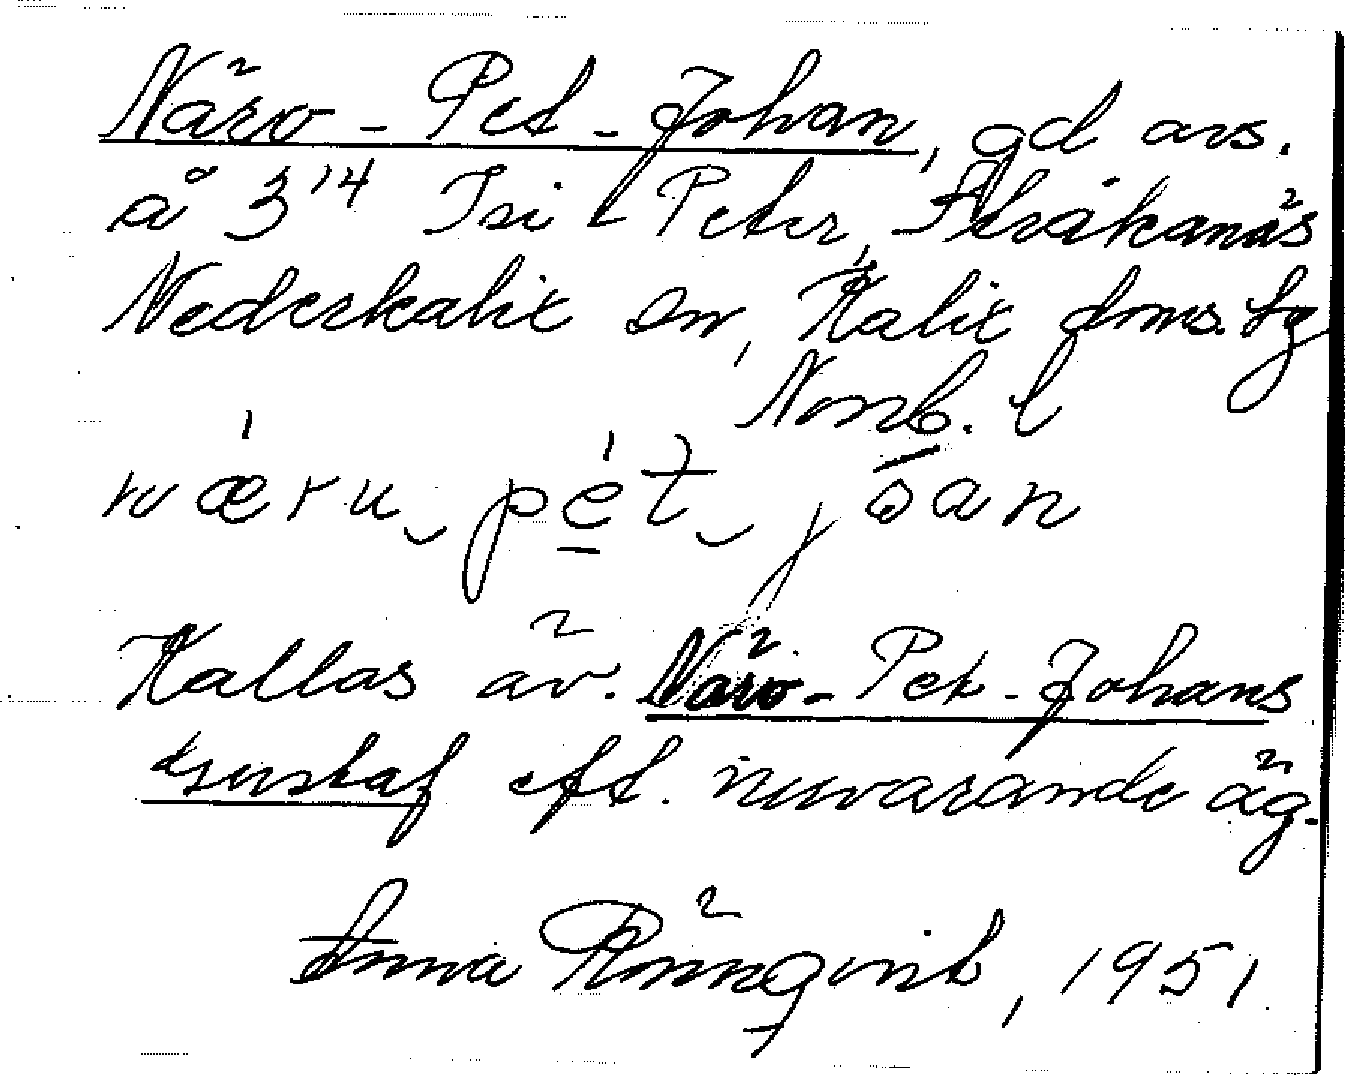 Närv - Pet - Johan, gd avs.
å 3¹⁴ Isi - Peter, Storåkanäs
Nederkalix sn, Kalix doms. tg
Norrb. l
næru‿pèt‿jòan
Kallas äv. Närv - Pet - Johans
Gustaf eft. nuvarande äg.
Anna Rönnqvist, 1951.